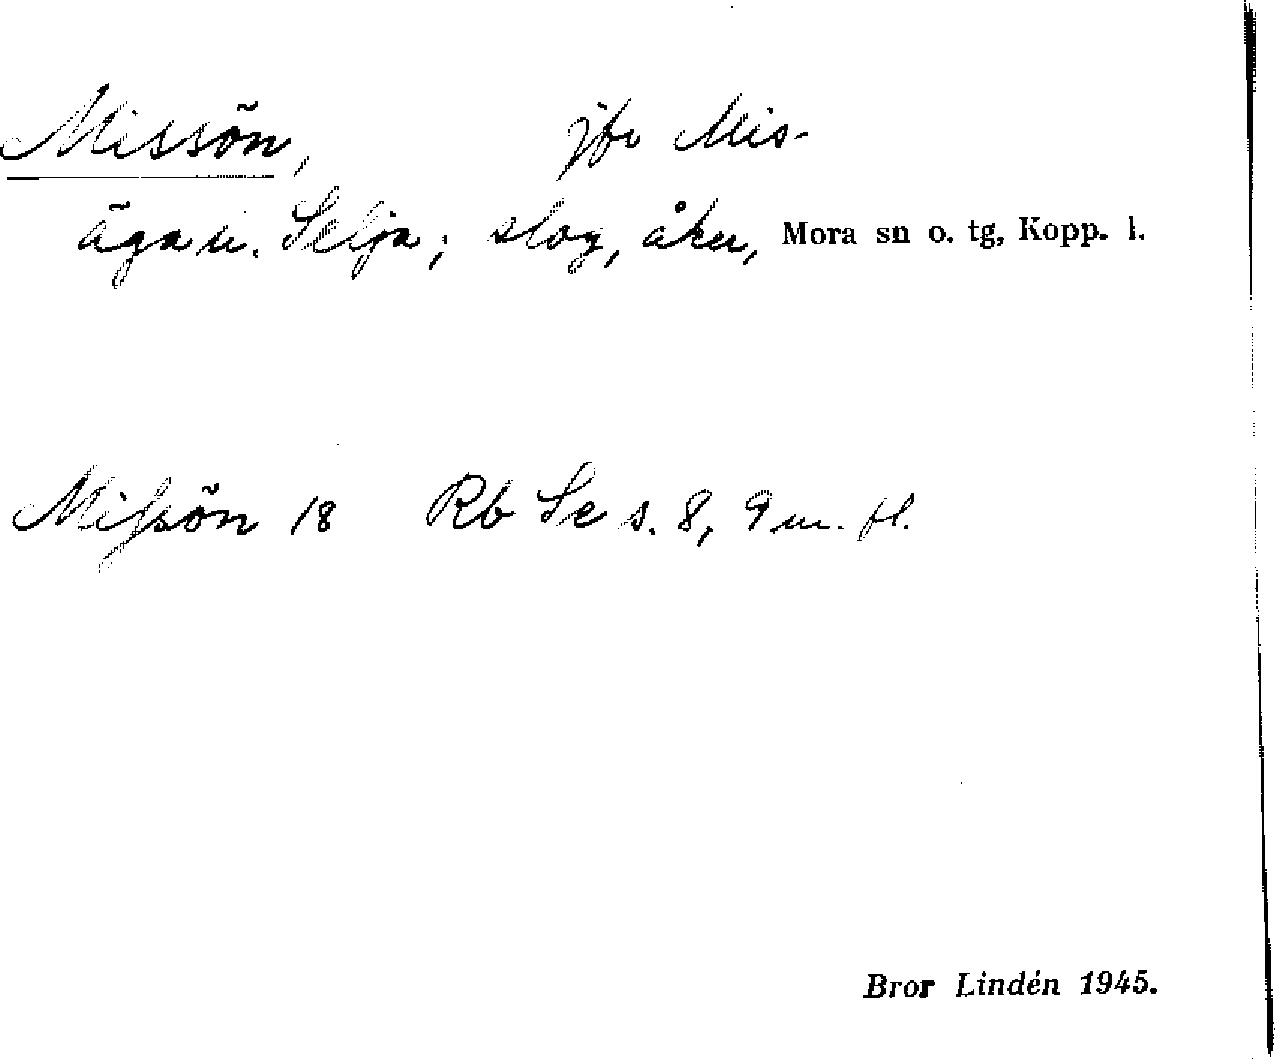 Missön, jfr Mis-
äga u. Selja; slog, åker, Mora sn o. tg, Kopp. l.
Miſsön 18 Rb Se s. 8, 9 m. fl.
Bror Lindén 1945.